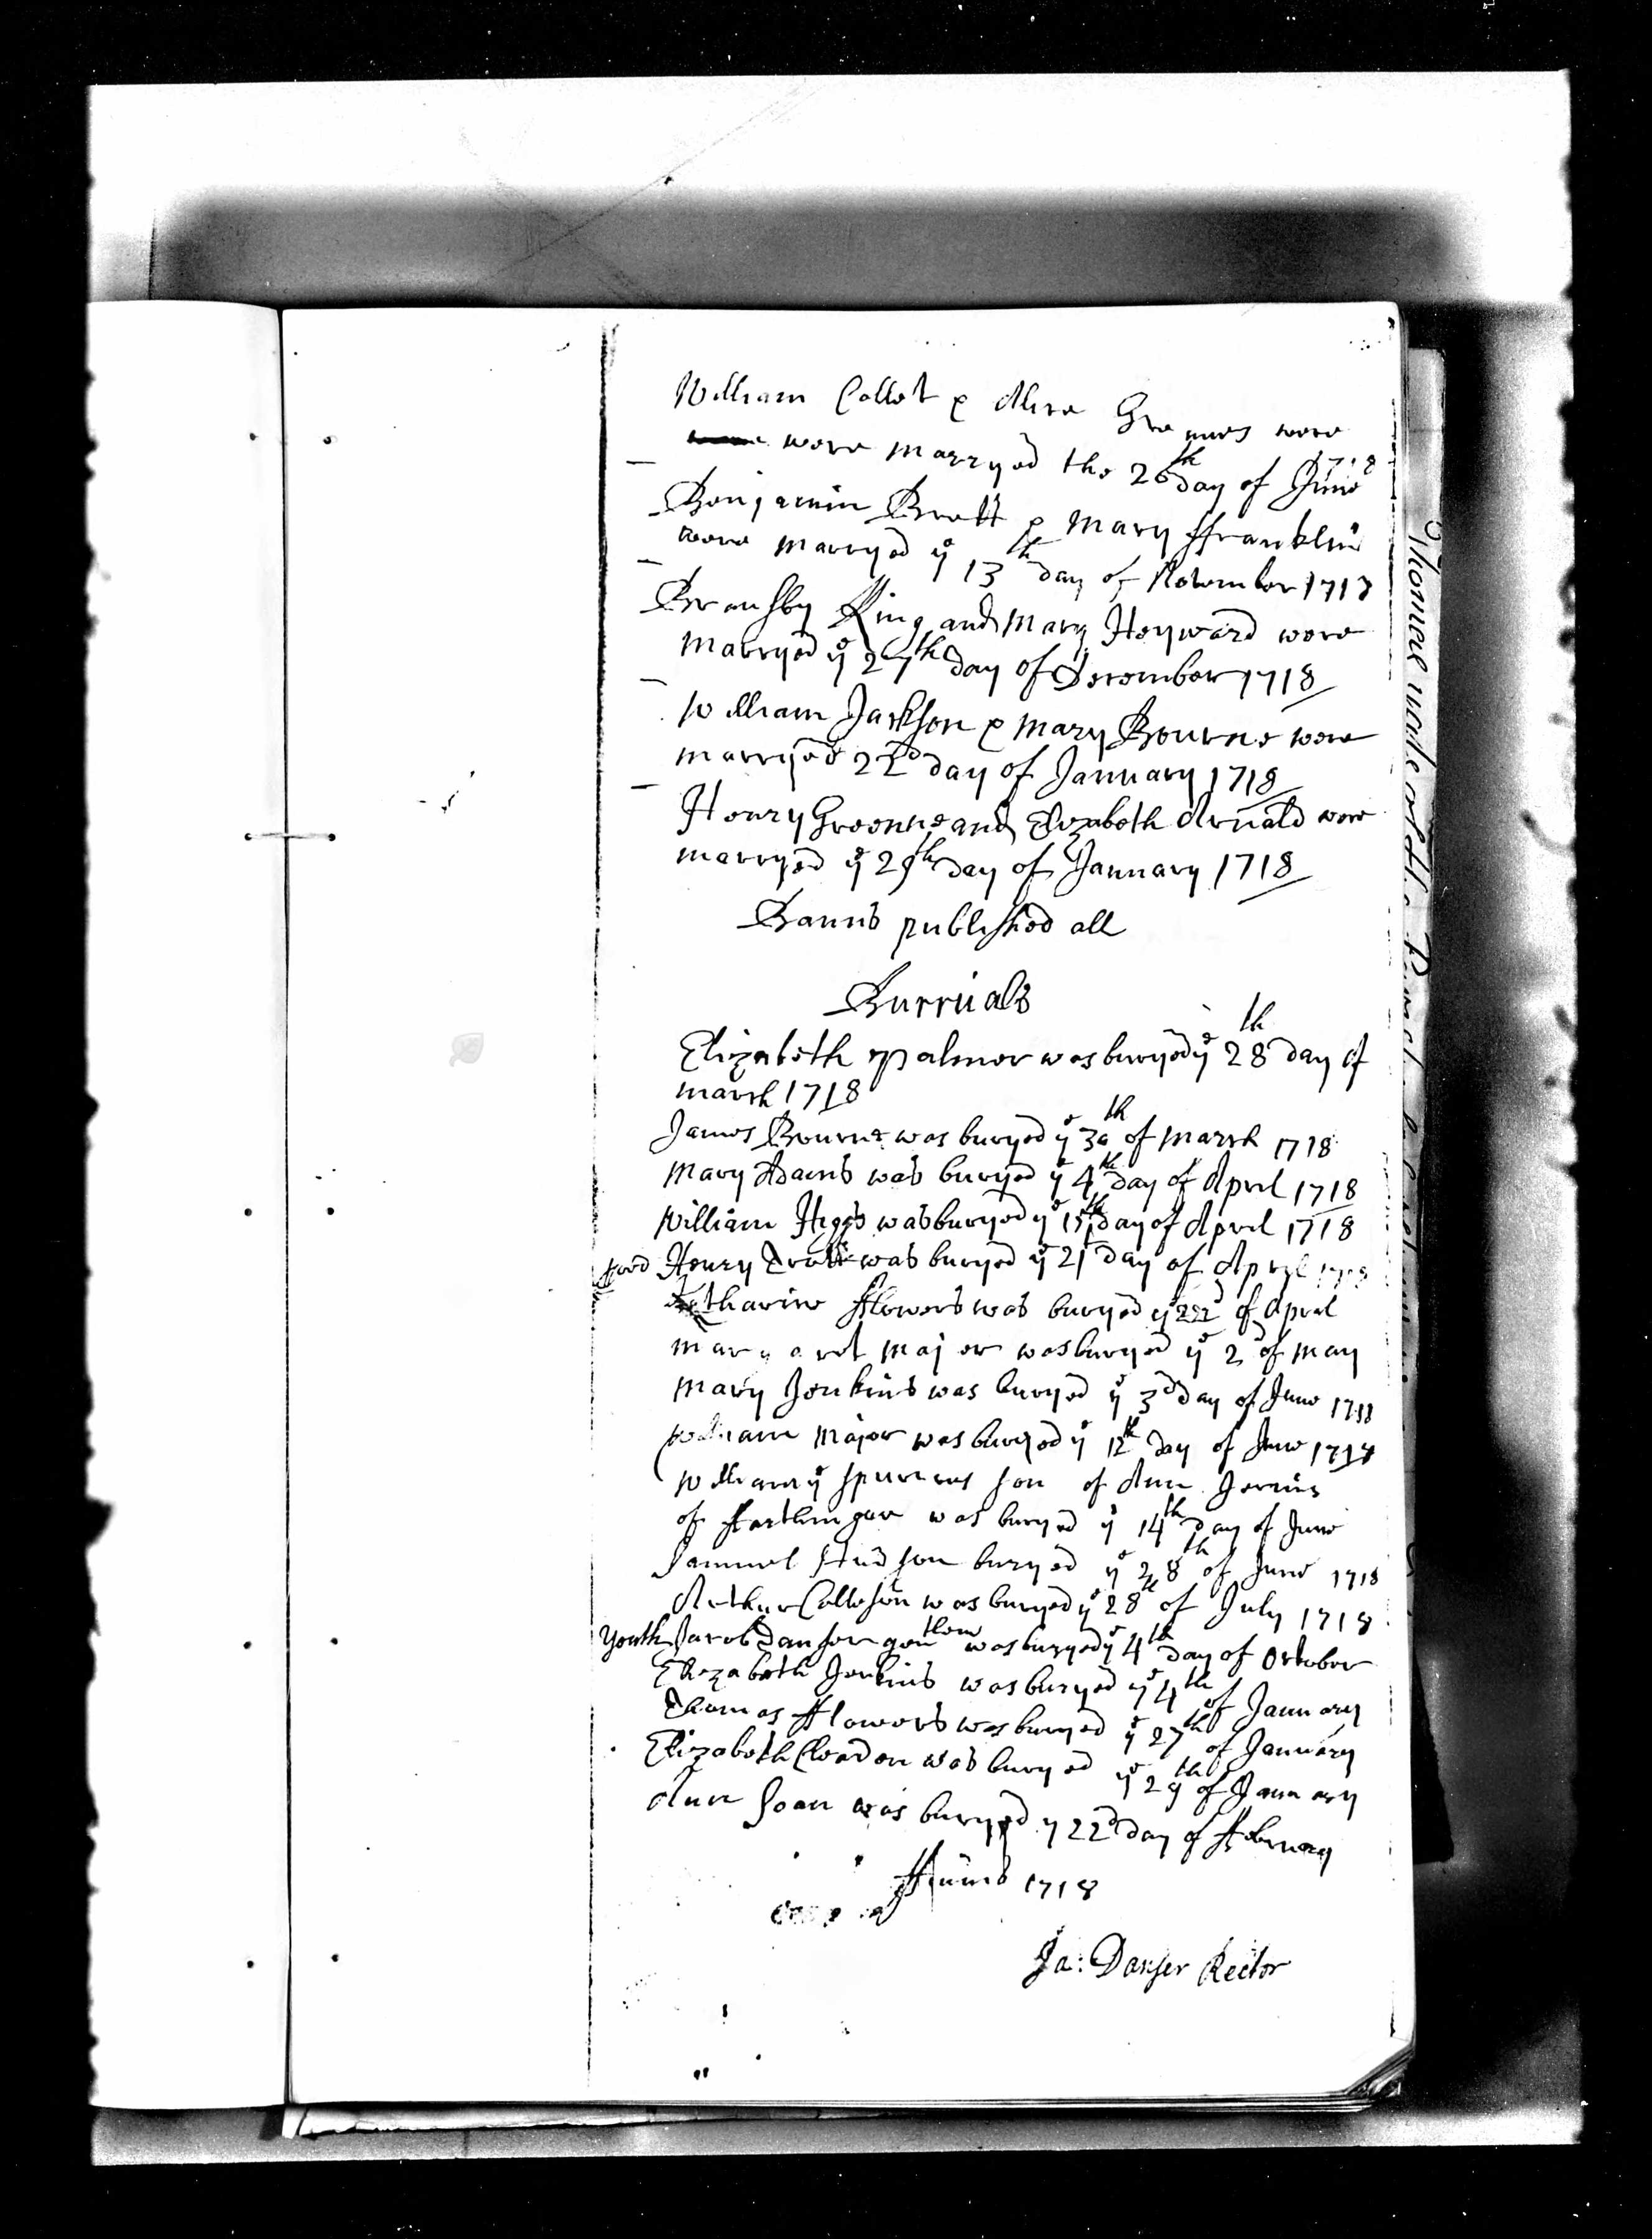 William Collet & Alice Greames were
were marryed the 26th day of June 1718
Benjamin Brett & Mary Franklin
were marryed ye 13th day of November 1718
Bransby King and Mary Heyward were
marryed ye 27th day of December 1718
William Jackson & Mary Bourne were
marryed 22d day of January 1718
Henry Greenne and Elizabeth Arnald were
marryed ye 29th day of January 1718
Banns published all
Burrials
Elizabeth Palmer was buryed ye 28th day of
march 1718
James Bourne was buryed ye 30th of march 1718
Mary Adams was buryed ye 4th day of April 1718
William Higgs was buryed ye 15th day of April 1718
Henry Trott was buryed ye 21 day of April 1718
Katharine Flowers was buryed ye 22d of April
margaret major was buryed ye 2d of may
Mary Jenkins was buryed ye 3d day of June 1718
William Major was buryed ye 12th day of June 1718
William ye spurious son of Ann Jervis
of was buryed ye 14th day of June
Samuel Hudson buryed ye 28th of June 1718
Arthur Colleson was buryed ye 28th of July 1718
youth Jacob Danser gentlem was buryed ye 4th day of October
Elizabeth Jenkins was buryed ye 4th of January
Thomas Flowers was buryed ye 27th of January
Elizabeth was buryed ye 29th of January
Ann was buryed ye 22d day of February
1718
Ja: Danser Rector